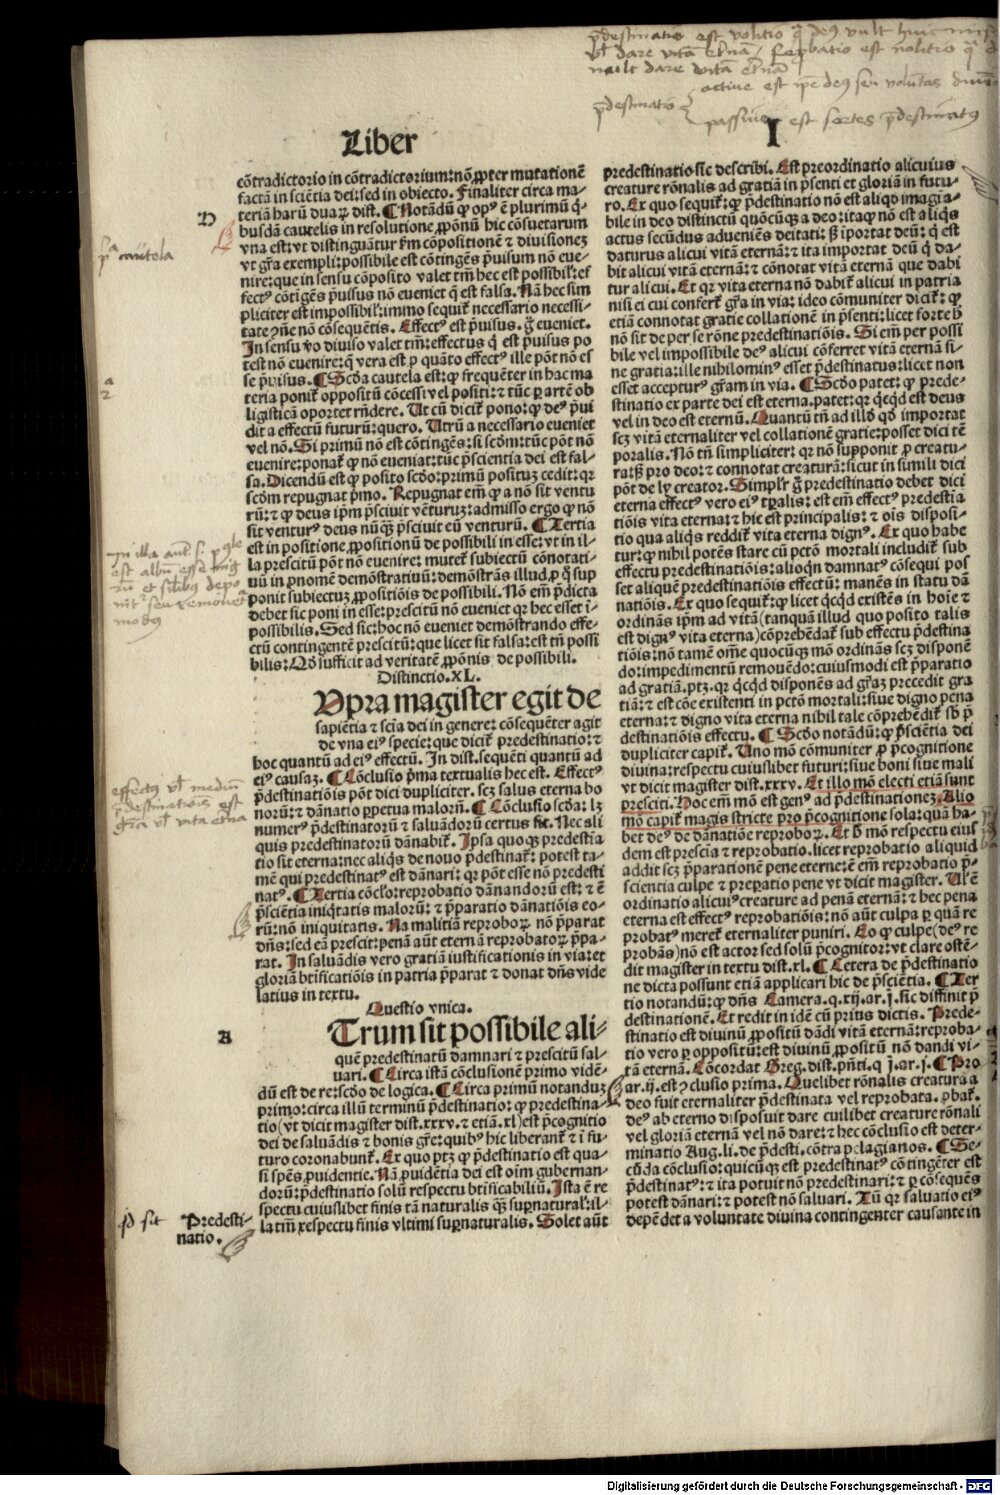 Liber
I
cōtradictorio in cōtradictorium: nō ꝓpter mutationē
factā in sciētia dei: sed in obiecto. Finaliter circa ma-
teriā harū duaꝝ dist. ¶ Notādū ꝙ opꝰ ē plurimū q̄-
busdā cautelis in resolutione ꝓpōnū hic cōsuetarum
vna est: vt distinguātur scḋm cōpositionē ⁊ divisionez
vt gr̄a exempli: possibile est cōtingēs p̄uisum nō eue-
nire: que in sensu cōposito valet tm̄ hec est possibil': ef
fectꝰ cōtigēs p̄uisus nō eueniet q̄ est falsa. Nā hec sim
pliciter est impossibil': immo sequit̄ necessario necessi-
tate ↄ̄ñe nō cōsequētis. Effectꝰ est p̄uisus. g̊ eueniet.
In sensu v̊o diuiso valet tm̄: effectus q̄ est p̄uisus po
test nō euenire: q̄ vera est ꝓ quāto effectꝰ ille pōt nō es
se p̄uisus. ¶ Scḋa cautela est: ꝙ frequēter in hac ma
teria ponit̄ oppositū cōcessi vel positi: ⁊ tūc ꝑ artē ob
ligisticā oportet rn̄dere. Ut cū dicit̄ pono: ꝙ deꝰ p̄ui
dit a effectū futurū: quero. Utrū a necessario eueniet
vel nō. Si primū nō est cōtingēs: si scḋm: tūc pōt nō
euenire: ponat̄ ꝙ nō eueniat: tūc p̄scientia dei est fal-
sa. Dicendū est ꝙ posito scḋo: primū posituʒ cedit: qꝛ
scḋm repugnat p̄mo. Repugnat em̄ ꝙ a nō sit ventu
rū: ⁊ ꝙ deus ip̄m p̄sciuit vēturuʒ: admisso ergo ꝙ nō
sit venturꝰ deus nūq̄ʒ p̄sciuit eū venturū. ¶ Tertia
est in positione ꝓpositionū de possibili in esse: vt in il-
la prescitū pōt nō euenire: mutet̄ subiectū cōnotati-
uū in ꝓnomē demōstratiuū: demōstrās illud ꝓ q̊ sup
ponit subiectuʒ ꝓpositiōis de possibili. Nō em̄ p̄dicta
debet sic poni in esse: prescitū nō eueniet qꝛ hec esset ī-
possibilis. Sed sic: hoc nō eueniet demōstrando effe-
ctū contingentē prescitū: que licet sit falsa: est tn̄ possi
bilis: Qḋ sufficit ad veritatē ꝓpōnis de possibili.
Distinctio. XL.
Upra magister egit de
sapiētia ⁊ scīa dei in genere: cōsequēter agit
de vna eiꝰ specie: que dicit̄ predestinatio: ⁊
hoc quantū ad eiꝰ effectū. In dist. sequēti quantū ad
eiꝰ causaʒ. ¶ Cōclusio p̄ma textualis hec est. Effectꝰ
p̄destinatiōis pōt dici dupliciter. scʒ salus eterna bo
norū: ⁊ dānatio ꝑpetua malorū. ¶ Cōclusio scḋa: lʒ
numerꝰ p̄destinatorū ⁊ saluādorū certus sit. Nec ali
quis predestinatorū dānabit̄. Ipsa quoqʒ predestīa
tio sit eterna: nec aliq̄s de nouo p̄destinat̄: potest ta-
mē qui predestinatꝰ est dānari: qꝛ pōt esse nō predesti
natꝰ. ¶ Tertia cōcl'o: reprobatio dānandorū est: ⁊ ē
p̄sciētia iniq̄tatis malorū: ⁊ p̄paratio dānatiōis eo-
rū: nō iniquitatis. Na malitiā reproboꝝ nō p̄parat
dn̄s: sed eā prescit: penā aūt eternā reprobatoꝝ p̄pa-
rat. In saluādis vero gratiā iustificationis in via: et
gloriā btificatiōis in patria p̄parat ⁊ donat dn̄s vide
latius in textu.
Questio vnica.
Trum sit possibile ali-
quē predestinatū damnari ⁊ prescitū sal-
uari. ¶ Circa istā cōclusionē primo vidē-
dū est de re: scḋo de logica. ¶ Circa primū notanduʒ
primo: circa illū terminū p̄destinatio: ꝙ predestina-
tio (vt dicit magister dist. xxxv. ⁊ etiā. xl) est p̄cognitio
dei de saluādis ⁊ bonis gr̄e: quibꝰ hic liberant̄ ⁊ ī fu-
turo coronabunt̄. Ex quo ptʒ ꝙ p̄destinatio est qua-
si spēs ꝓuidentie. Nā ꝓuidētia dei est oīm gubernan-
dorū: p̄destinatio solū respectu btificabiliū. Ista ē re
spectu cuiuslibet finis tā naturalis q̄ʒ suꝑnatural': il-
la tm̄ respectu finis vltimi suꝑnaturalis. Solet aūt
D
A
Predesti-
natio.
predestinatio sic describi. Est preordinatio alicuius
creature rōnalis ad gratiā in p̄senti et gloriā in futu-
ro. Ex quo sequit̄: ꝙ p̄destinatio nō est aliqḋ imagīa-
bile in deo distinctū quōcūqʒ a deo: itaqʒ nō est aliq̄s
actus secūdus adueniēs deitati: sʒ iportat deū: q̄ est
daturus alicui vitā eternā: ⁊ ita importat deū q̄ da-
bit alicui vitā eternā: ⁊ cōnotat vitā eternā que dabi
tur alicui. Et qꝛ vita eterna nō dabit̄ alicui in patria
nisi ei cui confert̄ gr̄a in via: ideo cōmuniter dicit̄: ꝙ
etiā connotat gratie collationē in p̄senti: licet forte h̄
nō sit de per se rōne predestinatiōis. Si em̄ per possi
bile vel impossibile deꝰ alicui cōferret vitā eternā si-
ne gratia: ille nihilominꝰ esset p̄destinatus: licet non
esset accepturꝰ gr̄am in via. ¶ Scḋo patet: ꝙ prede-
stinatio ex parte dei est eterna. patet: qꝛ q̄cq̄d est deus
vel in deo est eternū. Quantū tn̄ ad illḋ qḋ importat
scʒ vitā eternaliter vel collationē gratie: posset dici tē
poralis. Nō tn̄ simpliciter: qꝛ nō supponit ꝓ creatu-
ra: sʒ pro deo: ⁊ connotat creaturā: sicut in simili dici
pōt de ly creator. Simpl'r g̊ predestinatio debet dici
eterna effectꝰ vero eiꝰ tꝑalis: est em̄ effectꝰ predestīa
tiōis vita eterna: ⁊ hic est principalis: ⁊ oīs disposi-
tio qua aliq̄s reddit̄ vita eterna dignꝰ. Ex quo habe
tur: ꝙ nihil potēs stare cū pctō mortali includit̄ sub
effectu predestinatiōis: alioq̄n damnatꝰ cōsequi pos
set aliquē predestinatiōis effectū: manēs in statu dā
natiōis. Ex quo sequit̄: ꝙ licet q̄cq̄d existēs in hoīe ⁊
ordinās ip̄m ad vitā (tanquā illud quo posito talis
est dignꝰ vita eterna) cōprehēdat̄ sub effectu p̄destina
tiōis: nō tamē om̄e quocūqʒ mō ordinās scʒ disponē
do: impedimentū remouēdo: cuiusmodi est p̄paratio
ad gratiā. ptʒ. qꝛ q̄cq̄d disponēs ad gr̄aʒ precedit gra
tiā: ⁊ est cōe existenti in pctō mortali: siue digno pena
eterna: ⁊ digno vita eterna nihil tale cōprehēdit̄ sb̄ p̄
destinatiōis effectu. ¶ Scḋo notādū: ꝙ p̄sciētia dei
dupliciter capit̄. Uno mō cōmuniter ꝓ p̄cognitione
diuina: respectu cuiuslibet futuri: siue boni siue mali
vt dicit magister dist. xxxv. Et illo mō electi etiā sunt
presciti. Hoc em̄ mō est genꝰ ad p̄destinationeʒ. Alio
mō capit̄ magis stricte pro p̄cognitione sola: quā ha-
bet deꝰ de dānatiōe reproboꝝ. Et h̄ mō respectu eius
dem est prescia ⁊ reprobatio. licet reprobatio aliquid
addit scʒ p̄parationē pene eterne: ē em̄ reprobatio p̄-
scientia culpe ⁊ preparatio pene vt dicit magister. Ul' ē
ordinatio alicuiꝰ creature ad penā eternā: ⁊ hec pena
eterna est effectꝰ reprobatiōis: nō aūt culpa ꝑ quā re
probatꝰ meret̄ eternaliter puniri. Eo ꝙ culpe (deꝰ re
probās) nō est actor sed solū p̄cognitor: vt clare ostē-
dit magister in textu dist. xl. ¶ Cetera de p̄destinatio
ne dicta possunt etiā applicari hic de p̄sciētia. ¶ Ter
tio notandū: ꝙ dn̄s Camera. q. xij. ar. j. sic diffinit p̄
destinationē. Et redit in idē cū prius dictis. Prede-
stinatio est diuinū ꝓpositū dādi vitā eternā: reproba-
tio vero ꝑ oppositū: est diuinū ꝓpositū nō dandi vi-
tā eternā. Cōcordat Greg. dist. pn̄ti. q j. ar. j. ¶ Pro
ar. ij. est ↄclusio prima. Quelibet rōnalis creatura a
deo fuit eternaliter p̄destinata vel reprobata. ꝓbat̄.
deꝰ ab eterno disposuit dare cuilibet creature rōnali
vel gloriā eternā vel nō dare: ⁊ hec cōclusio est deter-
minatio Aug. li. de p̄desti. cōtra pelagianos. ¶ Se-
cūda cōclusio: quicūqʒ est predestinatꝰ cōtingēter est
p̄destinatꝰ: ⁊ ita potuit nō predestinari: ⁊ ꝑ cōsequēs
potest dānari: ⁊ potest nō saluari. Tū qꝛ saluatio eiꝰ
depēdet a voluntate diuina contingenter causante in
Digitalisierung gefördert durch die Deutsche Forschungsgemeinschaft - DFG